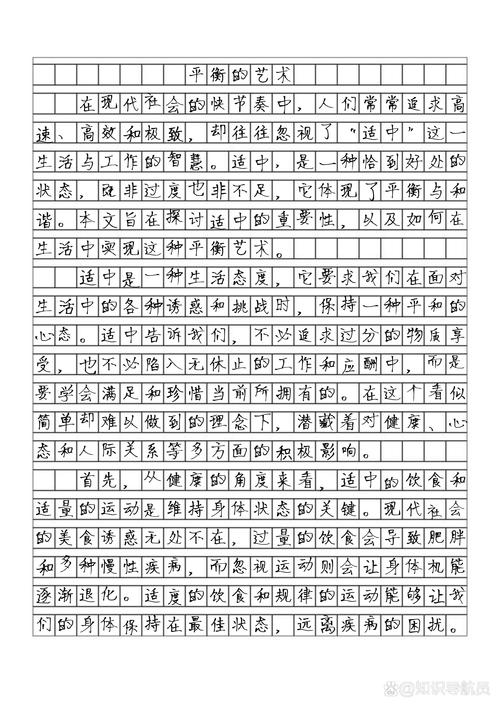 平衡的艺术
在现代社会的快节奏中，人们常常追求高
速、高效和极致，却往往忽视了“适中”这一
生活与工作的智慧。适中，是一种恰到好处的
状态，既非过度也非不足，它体现了平衡与和
谐。本文旨在探讨适中的重要性，以及如何在
生活中实现这种平衡艺术。
适中是一种生活态度，它要求我们在面对
生活中的各种诱惑和挑战时，保持一种平和的
心态。适中告诉我们，不必追求过分的物质享
受，也不必陷入无休止的工作和应酬中，而是
要学会满足和珍惜当前所拥有的。在这个看似
简单却难以做到的理念下，潜藏着对健康、心
态和人际关系等多方面的积极影响。
首先，从健康的角度来看，适中的饮食和
适量的运动是维持身体状态的关键。现代社会
的美食诱惑无处不在，过量的饮食会导致肥胖
和多种慢性疾病，而忽视运动则会让身体机能
逐渐退化。适度的饮食和规律的运动能够让我
们的身体保持在最佳状态，远离疾病的困扰。
@知识导航员